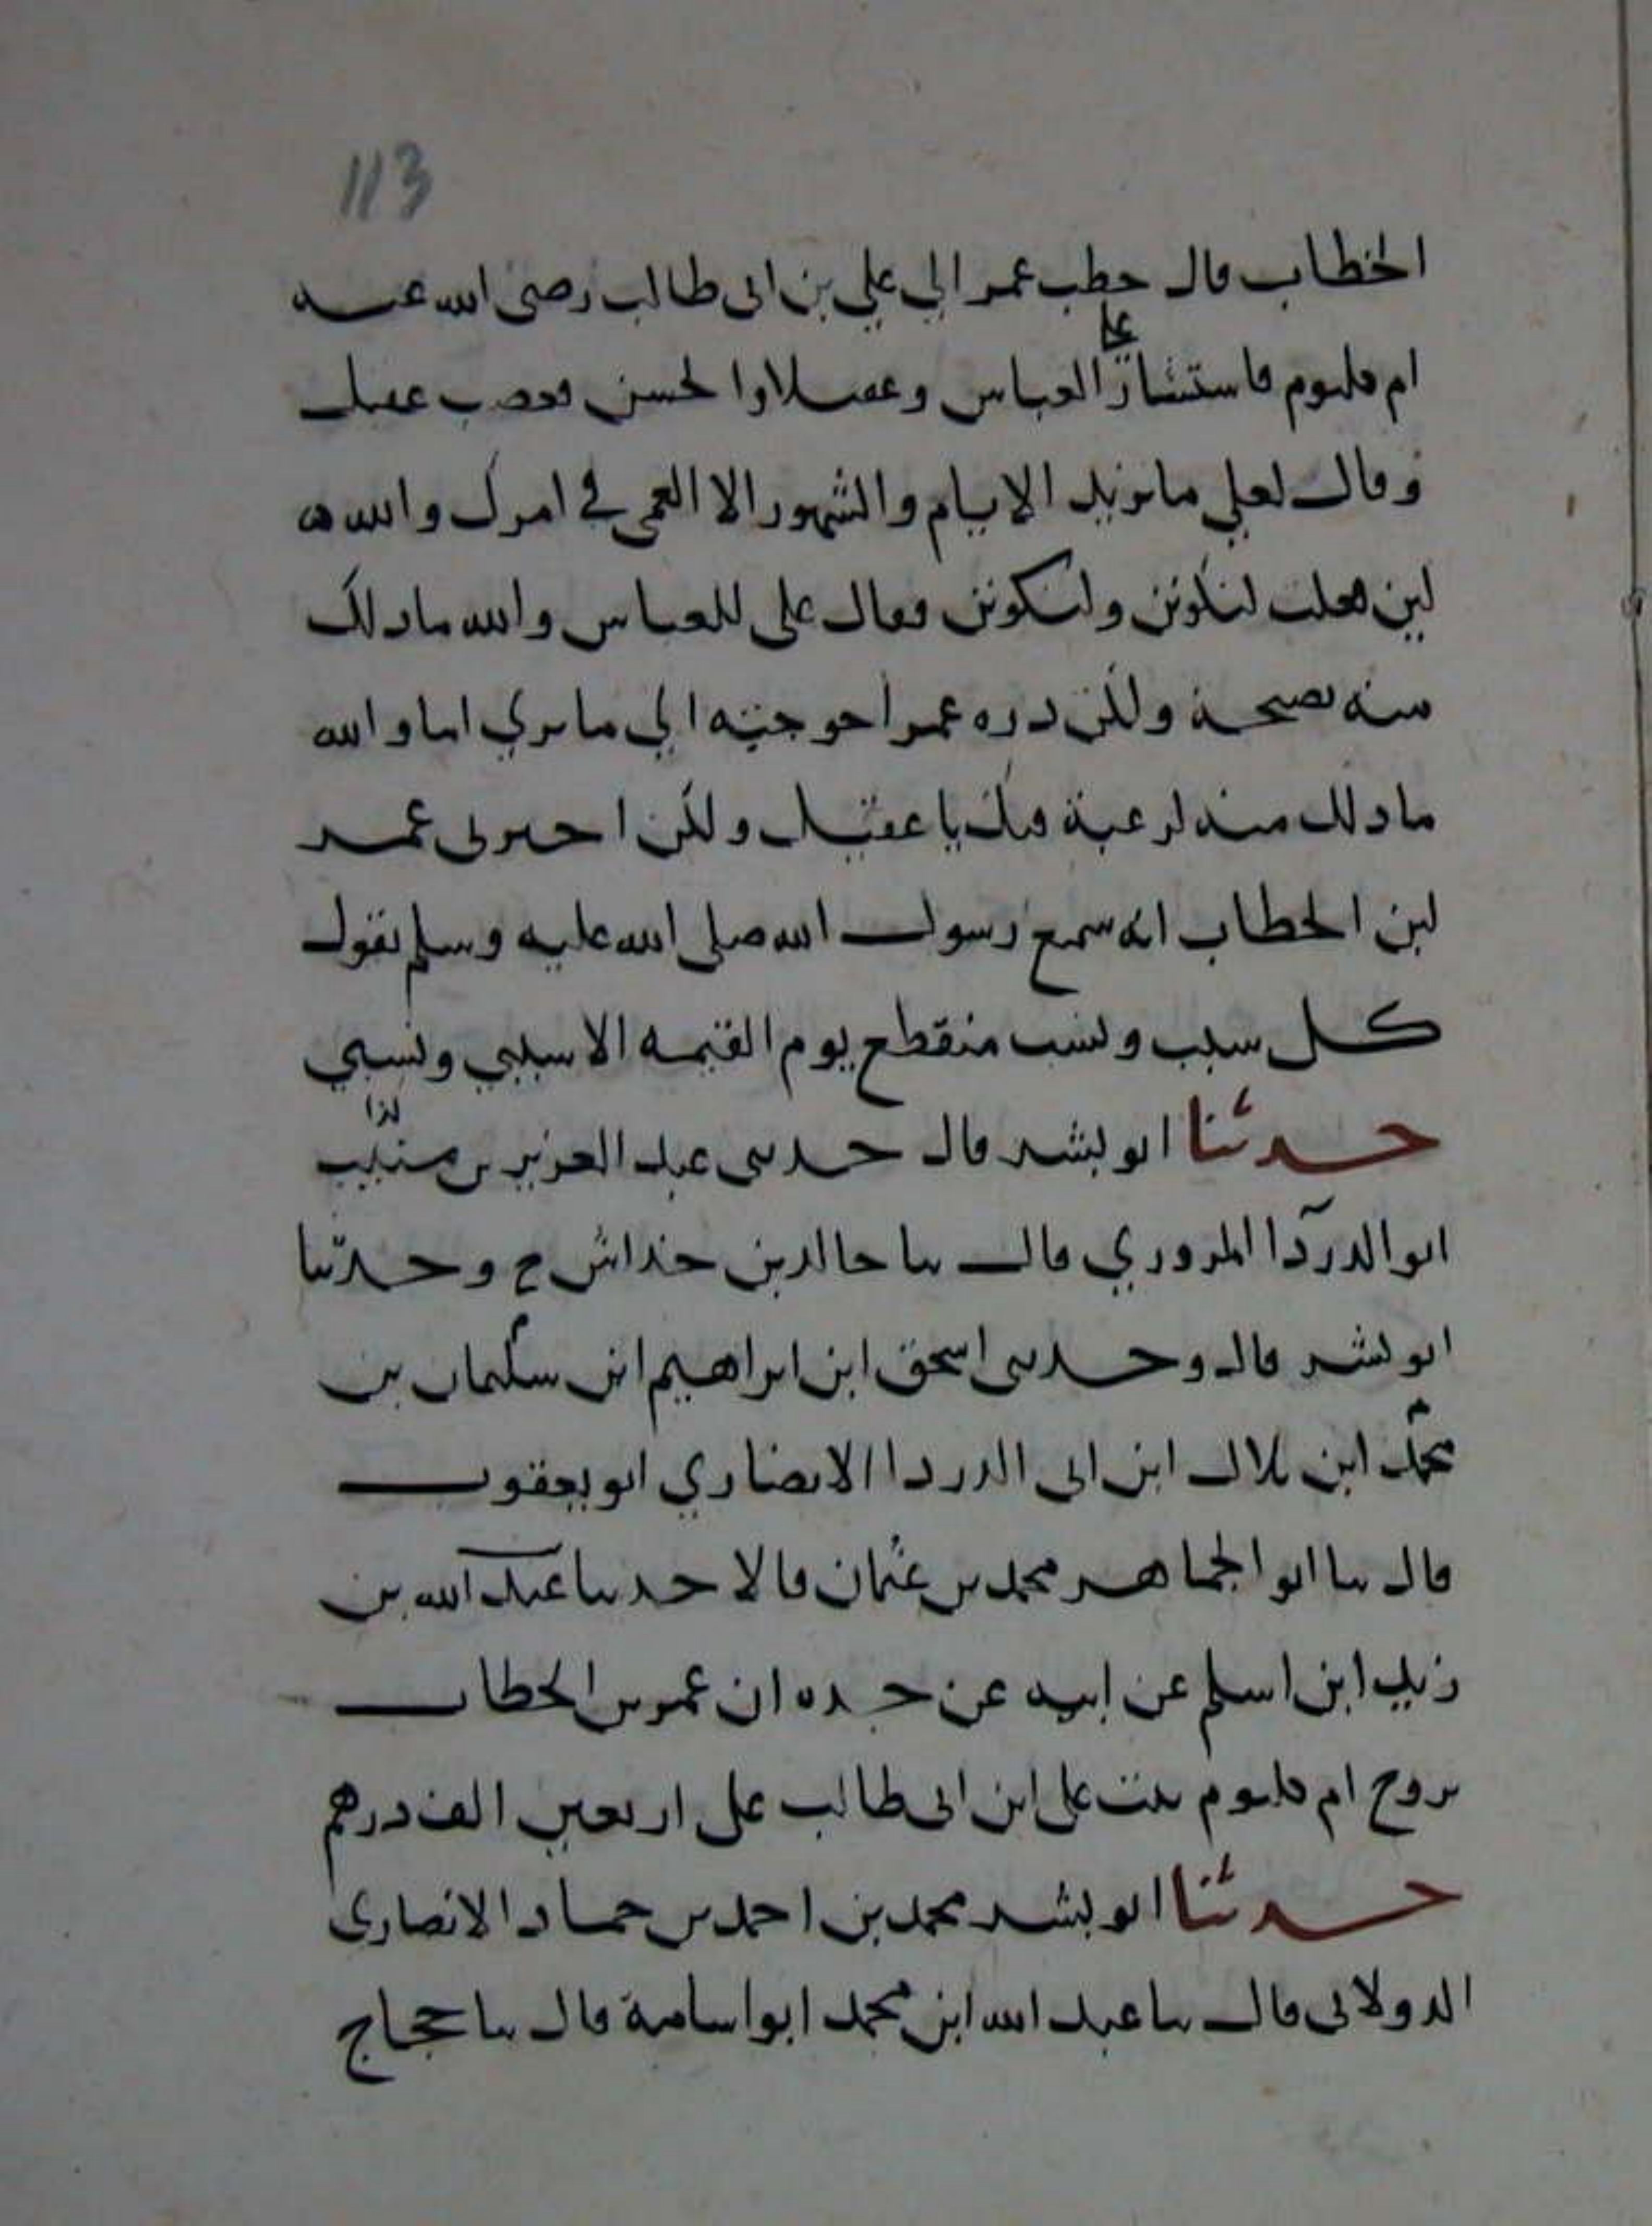 113
الخطاب قال خطب عمر الي علي بن ابى طالب رضى الله عنه
ام كلثوم فاستشار علي العباس وعقيلا والحسن فغضب عقيل
وقال لعلي ما تزيد الايام والشهور الا العمى في امرك والله
لين فعلت لتكونن ولتكونن فقال على للعباس والله ما ذلك
منه نصيحة ولكن دره عمر احوجته الي ما تري اما والله
ما ذلك منه لرغبة فيك يا عقيل ولكن اخبرنى عمر
ابن الخطاب انه سمع رسول الله صلى الله عليه وسلم يقول
كل سبب ونسب منقطع يوم القيمه الا سببي ونسبي
حدثنا ابو بشر قال حدثنى عبد العزيز بن منيب
كذا
ابو الدردا المروري قال ثنا خالد بن خداش ح وحدثنا
ابو بشر قال وحدثنى اسحق ابن ابراهيم ابن سليمان بن
محمد ابن بلال ابن ابى الدردا الانصاري ابو يعقوب
قال ثنا ابو الجماهر محمد بن عثمان قالا حدثنا عبد الله بن
زيد ابن اسلم عن ابيه عن جده ان عمر بن الخطاب
تزوج ام كلثوم بنت على ابن ابى طالب على اربعين الف درهم
حدثنا ابو بشر محمد بن احمد بن حماد الانصاري
الدولابى قال ثنا عبد الله ابن محمد ابو اسامة قال ثنا حجاج